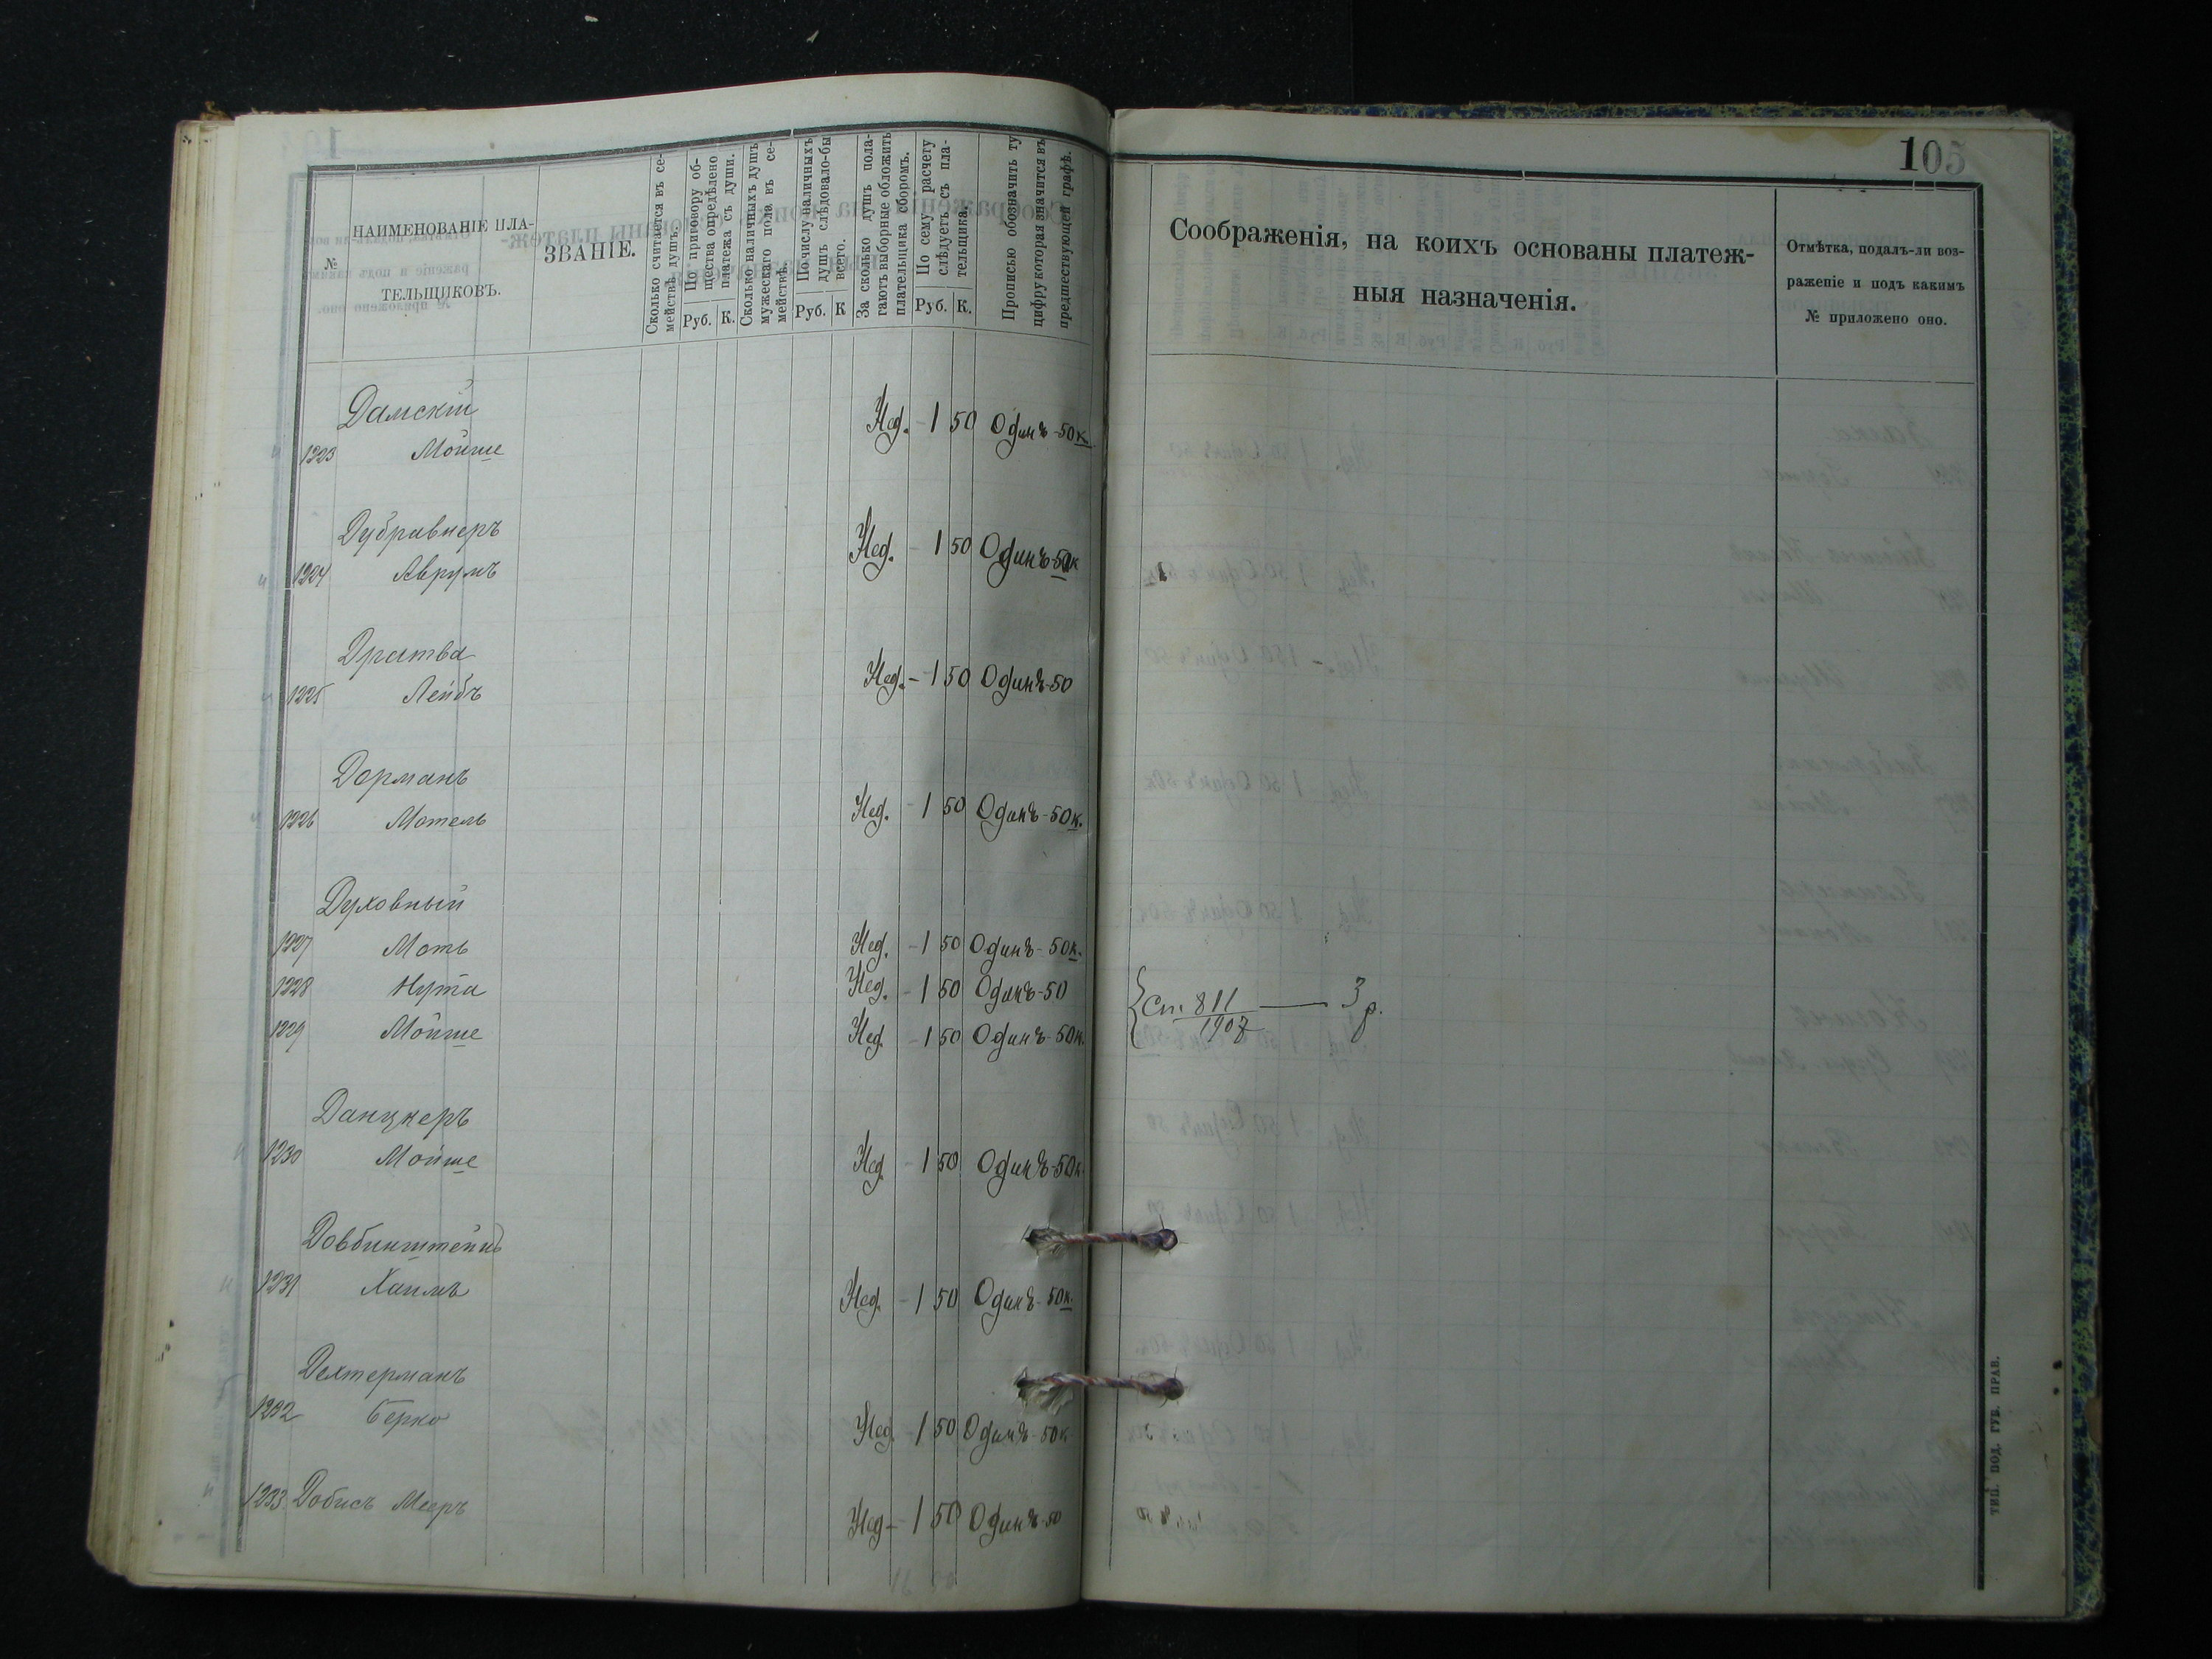 №
НАИМЕНОВАНІЕ ПЛА-
ТЕЛЬЩИКОВЪ.
ЗВАНІЕ.
Сколько считается въ се-
мействѣ душъ.
По приговору об-
щества опредѣлено
платежа съ души.
Руб. К.
Сколько наличныхъ душъ
мужескаго пола въ се-
мействѣ.
По числу наличныхъ
душъ слѣдовало-бы
всего.
Руб. К
За сколько душъ пола-
гаютъ выборные обложить
плательщика сборомъ.
По сему расчету
слѣдуетъ съ пла-
тельщика.
Руб. К.
Прописью обозначить ту
цифру которая значится въ
предшествующей графѣ.
Дамскій
1223 Мойше Нед. - 1 50 Одинъ - 50 к
Дубравнеръ
1224 Аврумъ Нед. - 1 50 Одинъ - 50 к
Дратва
1225 Лейбъ Нед. - 1 50 Одинъ - 50
Дорманъ
1226 Мотель Нед. - 1 50 Одинъ - 50 к.
Духовный
1227 Моть Нед. - 1 50 Одинъ - 50 к.
1228 Нута Нед. - 1 50 Одинъ - 50
1229 Мойше Нед. - 1 50 Одинъ - 50 к.
Данцкеръ
1230 Мойше Нед - 1 50 Одинъ - 50 к
Довбинштейнъ
1231 Хаимъ Нед. - 1 50 Одинъ - 50 к.
Дехтерманъ
1232 Берко Нед. - 1 50 Одинъ - 50 к
1233 Добисъ Мееръ Нед - 1 50 Одинъ - 50
105
Соображенія, на коихъ основаны платеж-
ныя назначенія.
Отмѣтка, подалъ-ли воз-
раженіе и подъ какимъ
№ приложено оно.
Ст. 811 — 3 р.
1907
ТИП. ПОД. ГУБ. ПРАВ.